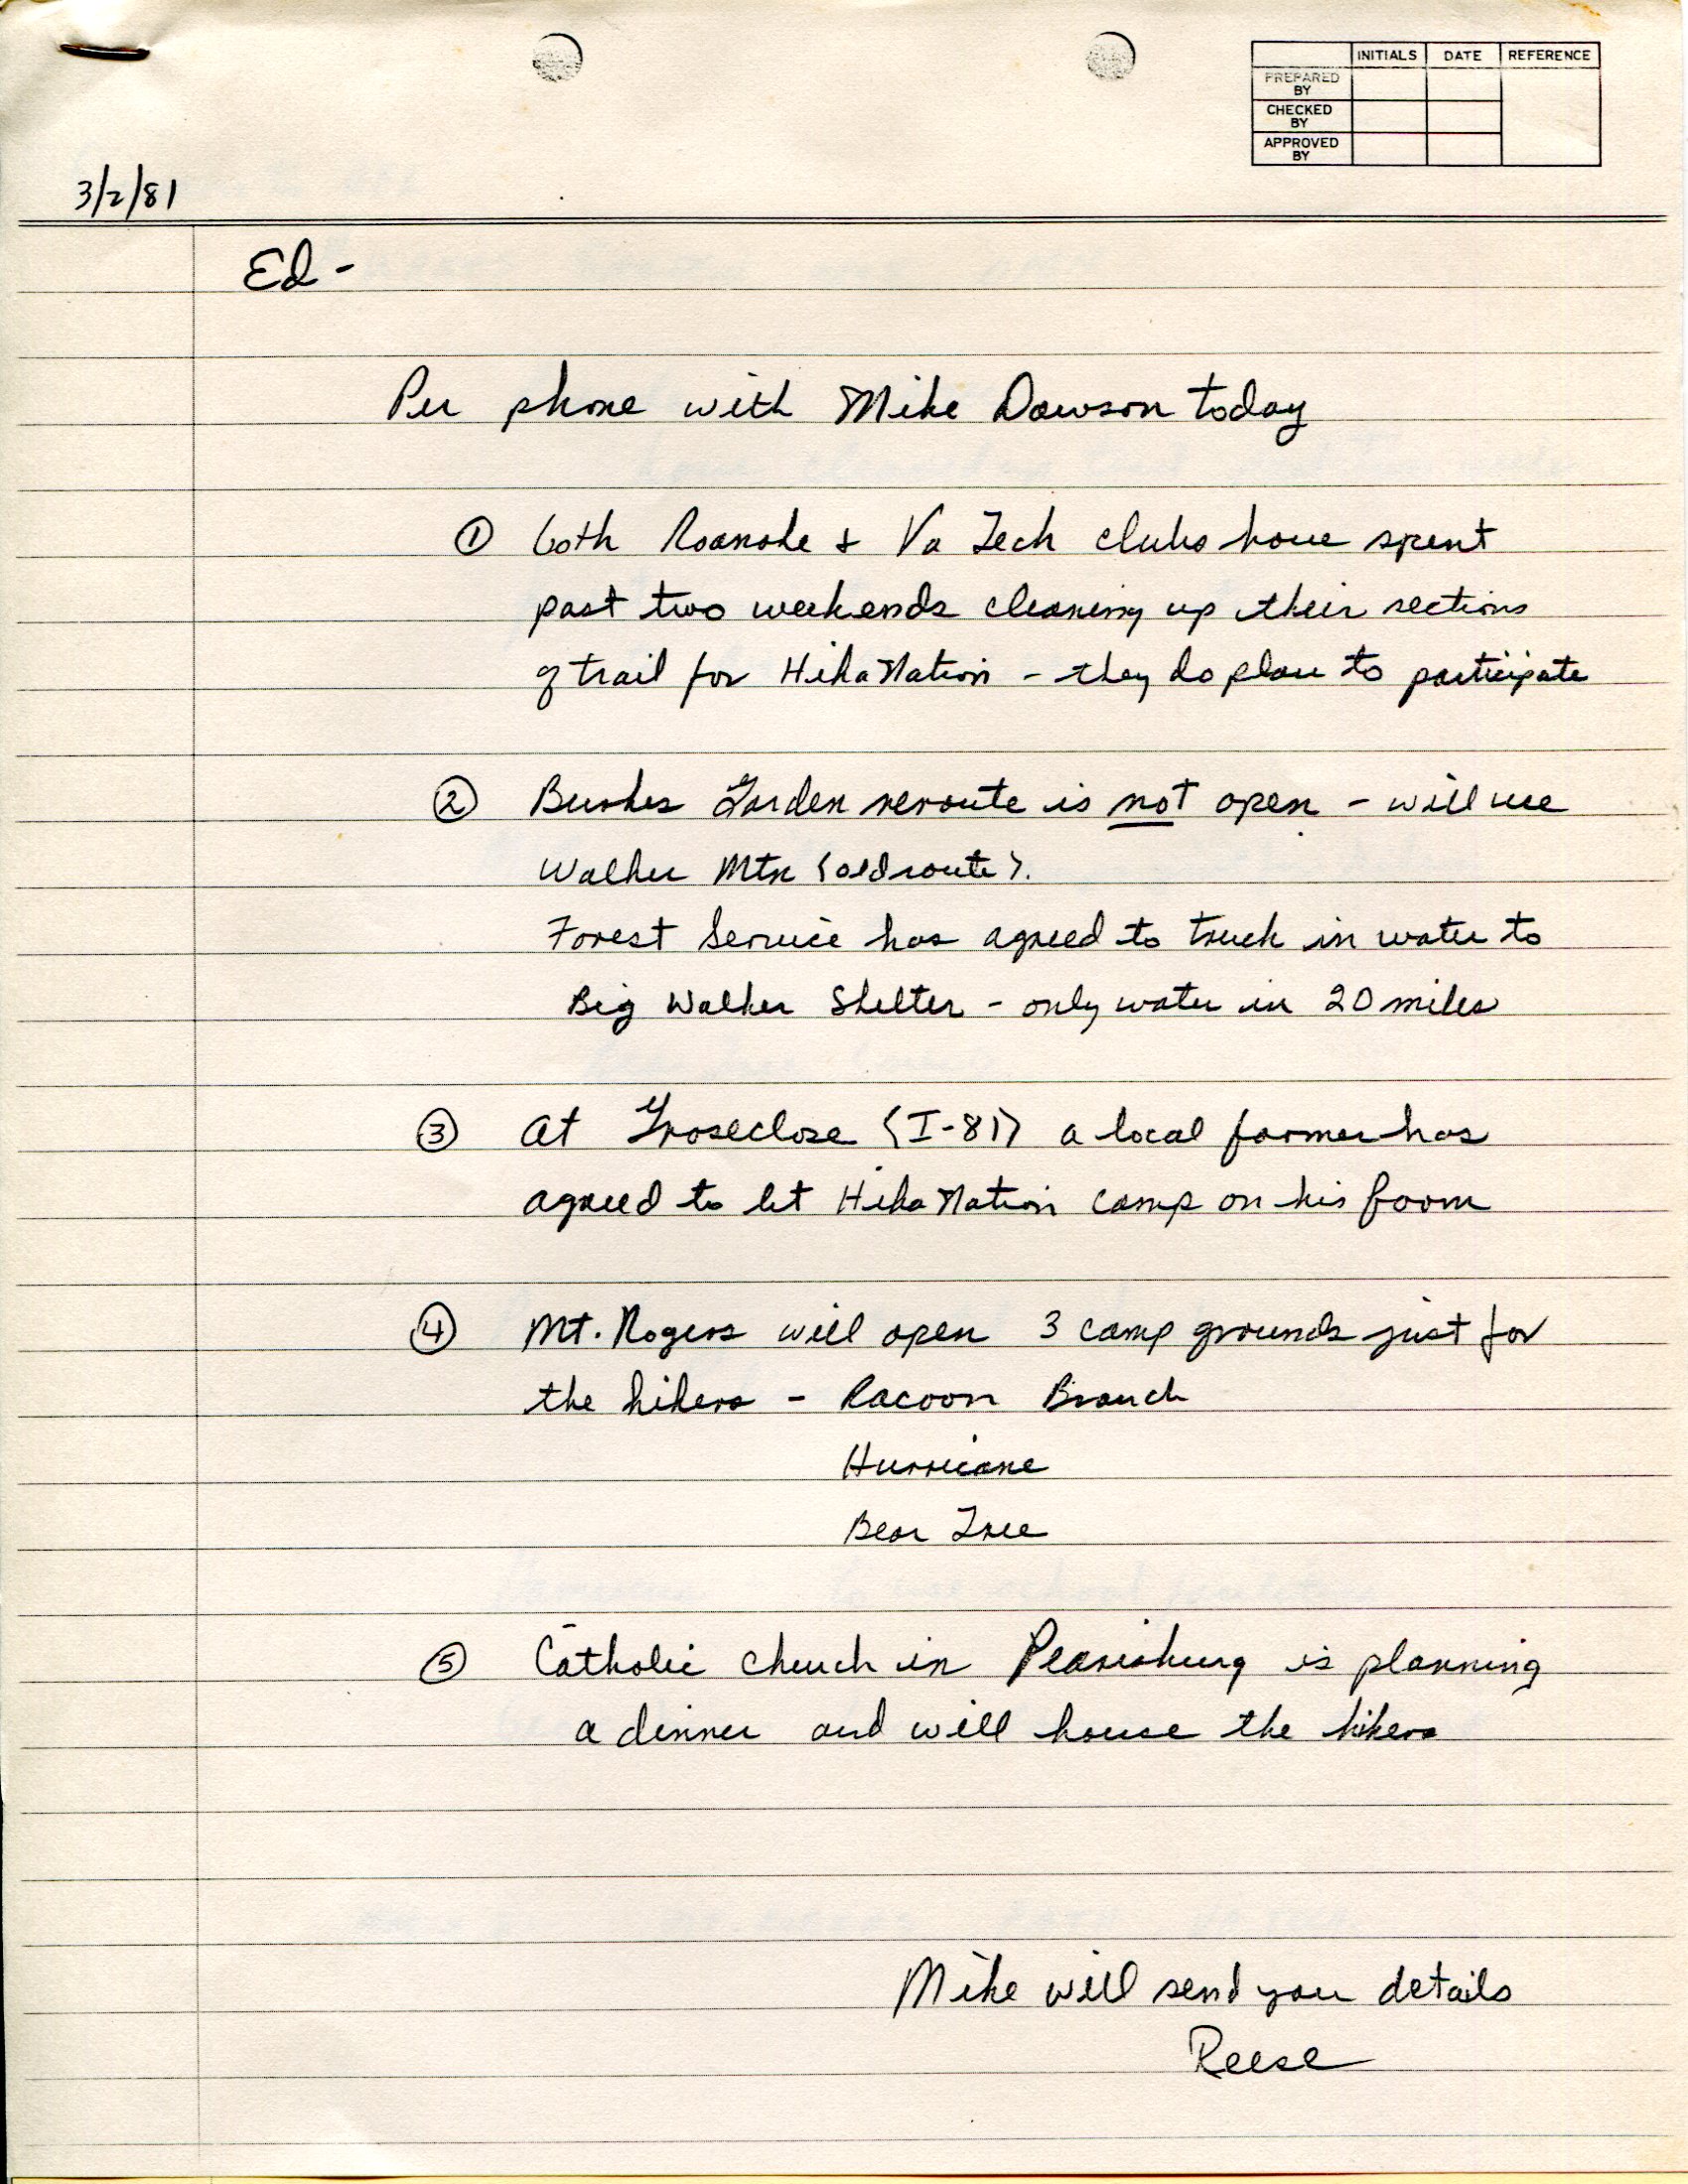 INITIALS DATE REFERENCE
PREPARED BY
CHECKED BY
APPROVED BY
3/2/81
Ed -
Per phone with Mike Dawson today
① both Roanoke & Va Tech clubs have spent
past two weekends cleaning up their sections
of trail for HikaNation - they do plan to participate
② Burkes Garden reroute is not open - will use
Walker Mtn (old route).
Forest Service has agreed to truck in water to
Big Walker Shelter - only water in 20 miles
③ At Groseclose (I-81) a local farmer has
agreed to let HikaNation camp on his farm
④ Mt. Rogers will open 3 camp grounds just for
the hikers - Racoon Branch
Hurricane
Bear Tree
⑤ Catholic church in Pearisburg is planning
a dinner and will house the hikers
Mike will send you details
Reese